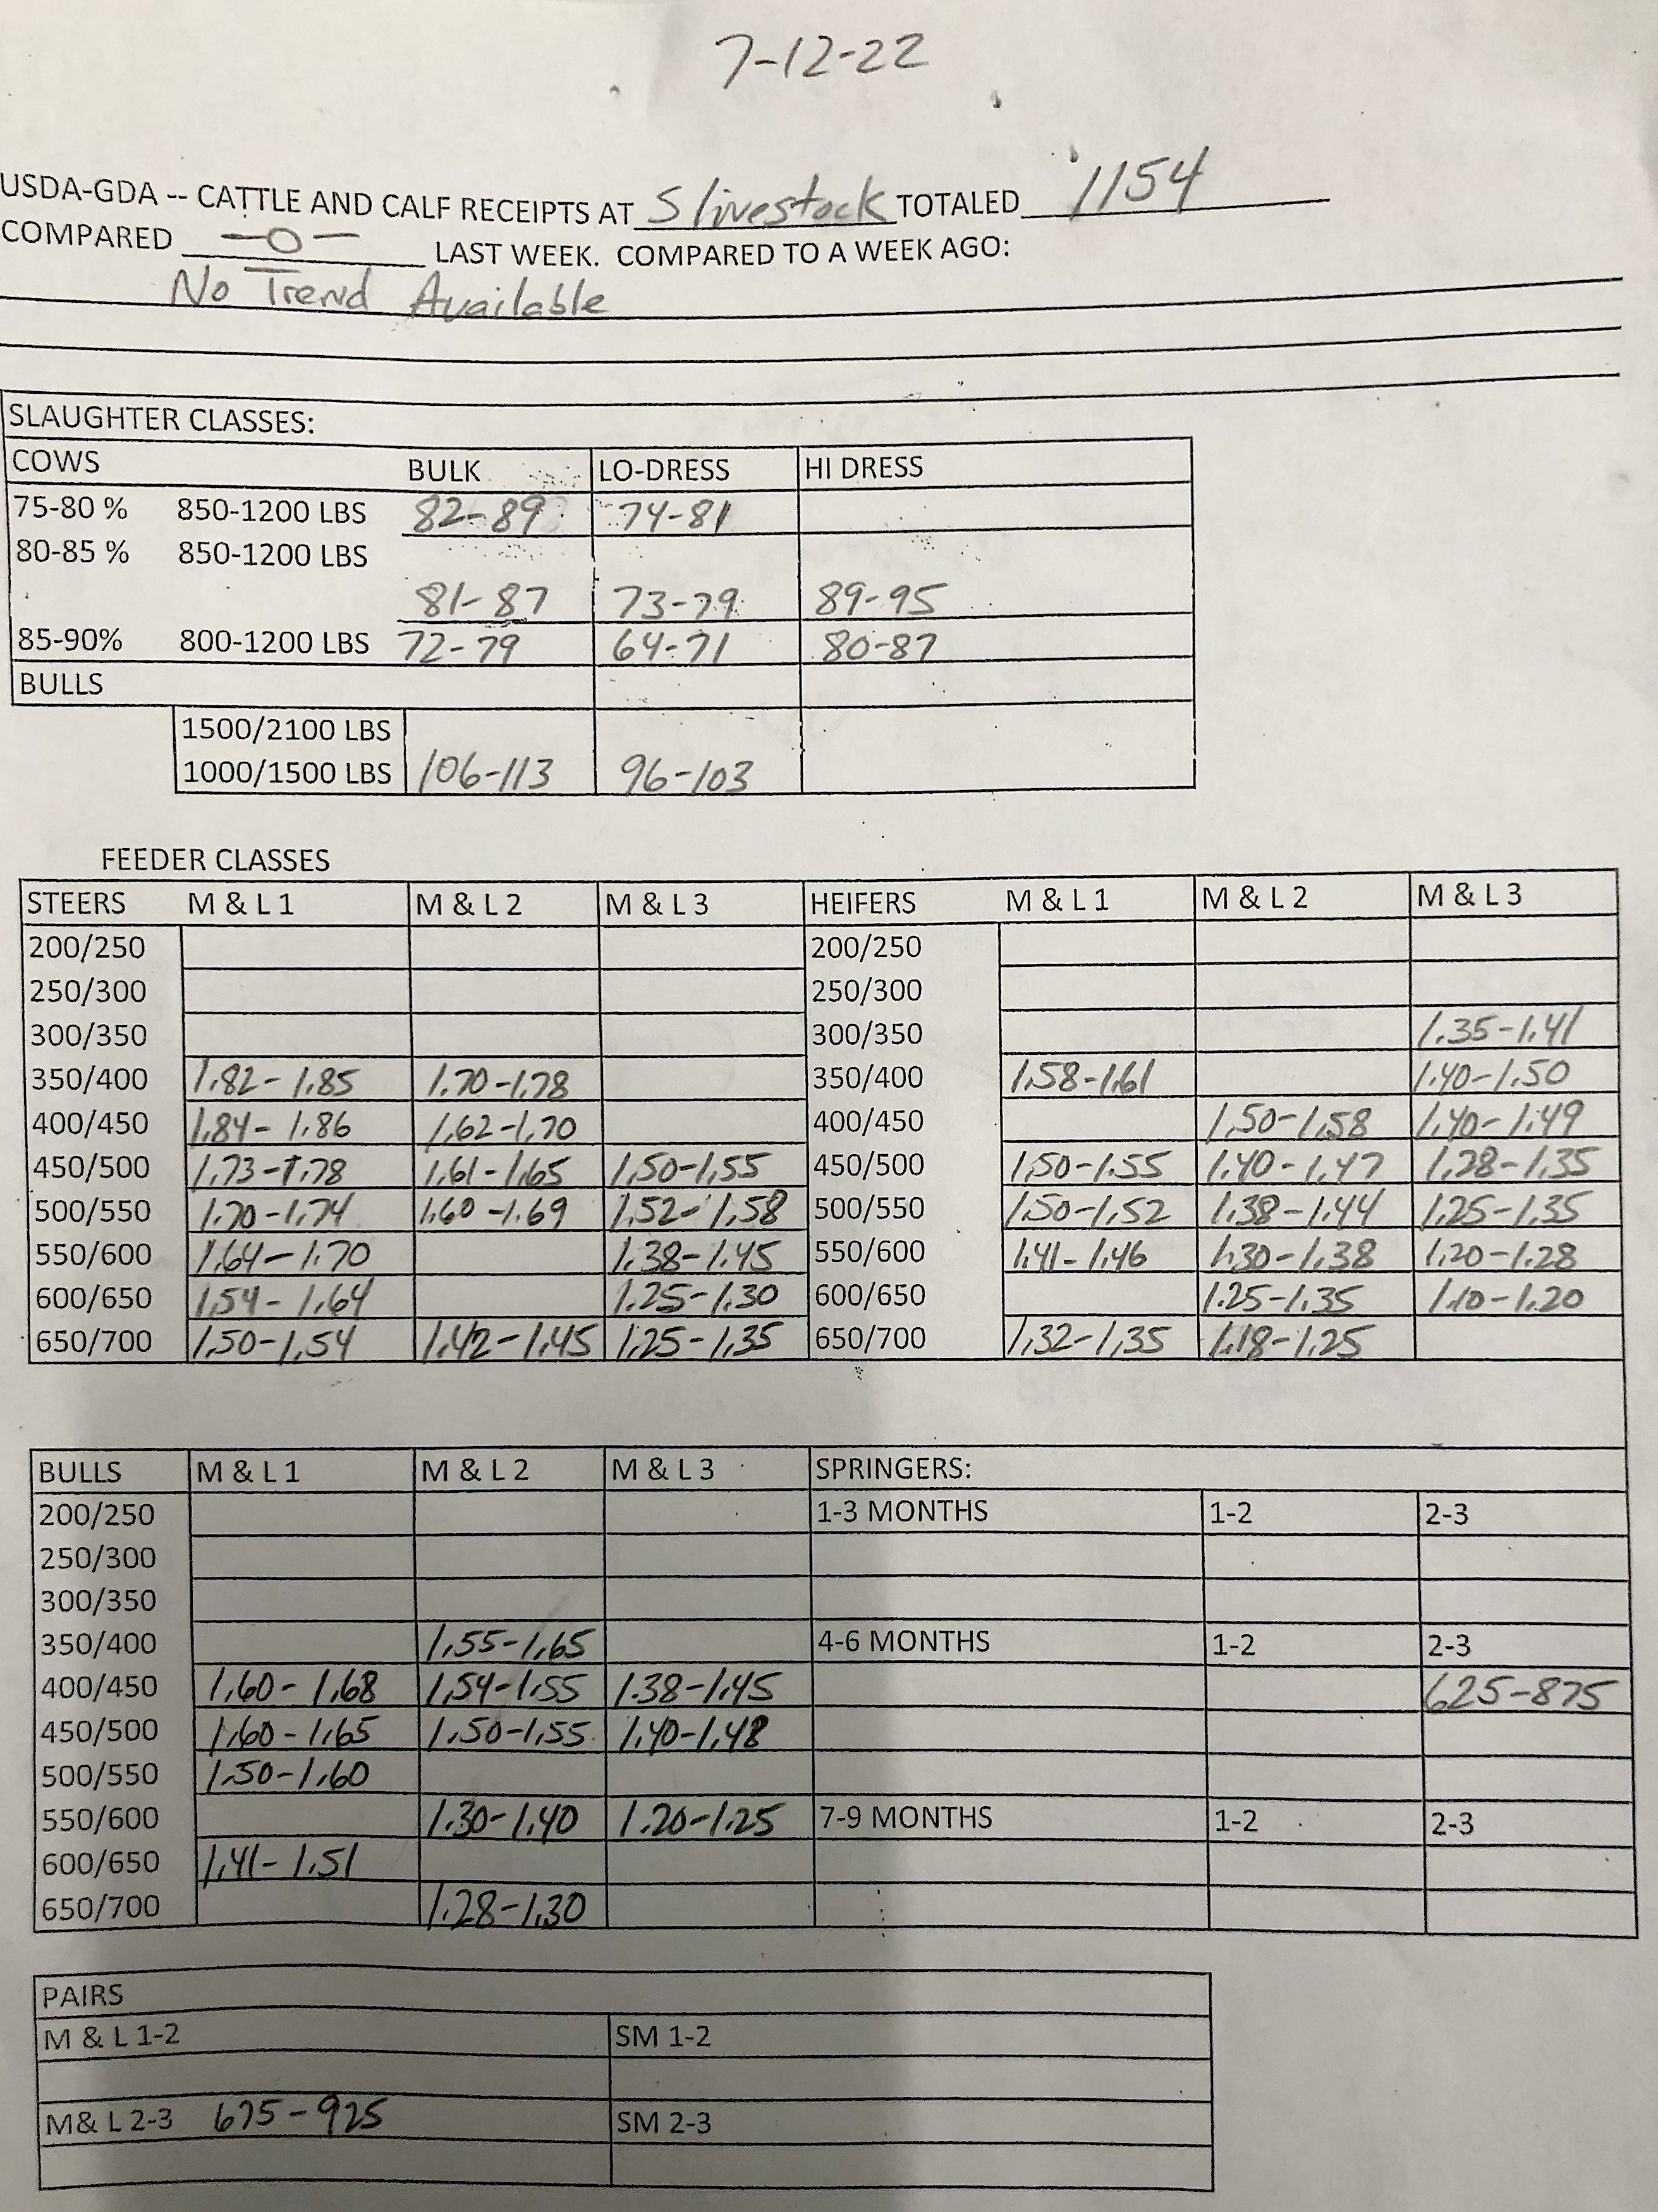 7-12-22
USDA-GDA -- CATTLE AND CALF RECEIPTS AT S livestock TOTALED 1154
COMPARED -0- LAST WEEK. COMPARED TO A WEEK AGO:
No Trend Available
SLAUGHTER CLASSES:
COWS BULK LO-DRESS HI DRESS
75-80 % 850-1200 LBS 82-89 74-81
80-85 % 850-1200 LBS
81-87 73-79 89-95
85-90% 800-1200 LBS 72-79 64-71 80-87
BULLS
1500/2100 LBS
1000/1500 LBS 106-113 96-103
FEEDER CLASSES
STEERS M & L 1 M & L 2 M & L 3 HEIFERS M & L 1 M & L 2 M & L 3
200/250 200/250
250/300 250/300
300/350 300/350 1.35-1.41
350/400 1.82-1.85 1.70-1.78 350/400 1.58-1.61 1.40-1.50
400/450 1.84-1.86 1.62-1.70 400/450 1.50-1.58 1.40-1.49
450/500 1.73-1.78 1.61-1.65 1.50-1.55 450/500 1.50-1.55 1.40-1.47 1.28-1.35
500/550 1.70-1.74 1.60-1.69 1.52-1.58 500/550 1.50-1.52 1.38-1.44 1.25-1.35
550/600 1.64-1.70 1.38-1.45 550/600 1.41-1.46 1.30-1.38 1.20-1.28
600/650 1.54-1.64 1.25-1.30 600/650 1.25-1.35 1.10-1.20
650/700 1.50-1.54 1.42-1.45 1.25-1.35 650/700 1.32-1.35 1.18-1.25
BULLS M & L 1 M & L 2 M & L 3 SPRINGERS:
200/250 1-3 MONTHS 1-2 2-3
250/300
300/350
350/400 1.55-1.65 4-6 MONTHS 1-2 2-3
400/450 1.60-1.68 1.54-1.55 1.38-1.45 625-875
450/500 1.60-1.65 1.50-1.55 1.40-1.48
500/550 1.50-1.60
550/600 1.30-1.40 1.20-1.25 7-9 MONTHS 1-2 2-3
600/650 1.41-1.51
650/700 1.28-1.30
PAIRS
M & L 1-2 SM 1-2
M& L 2-3 675-925 SM 2-3